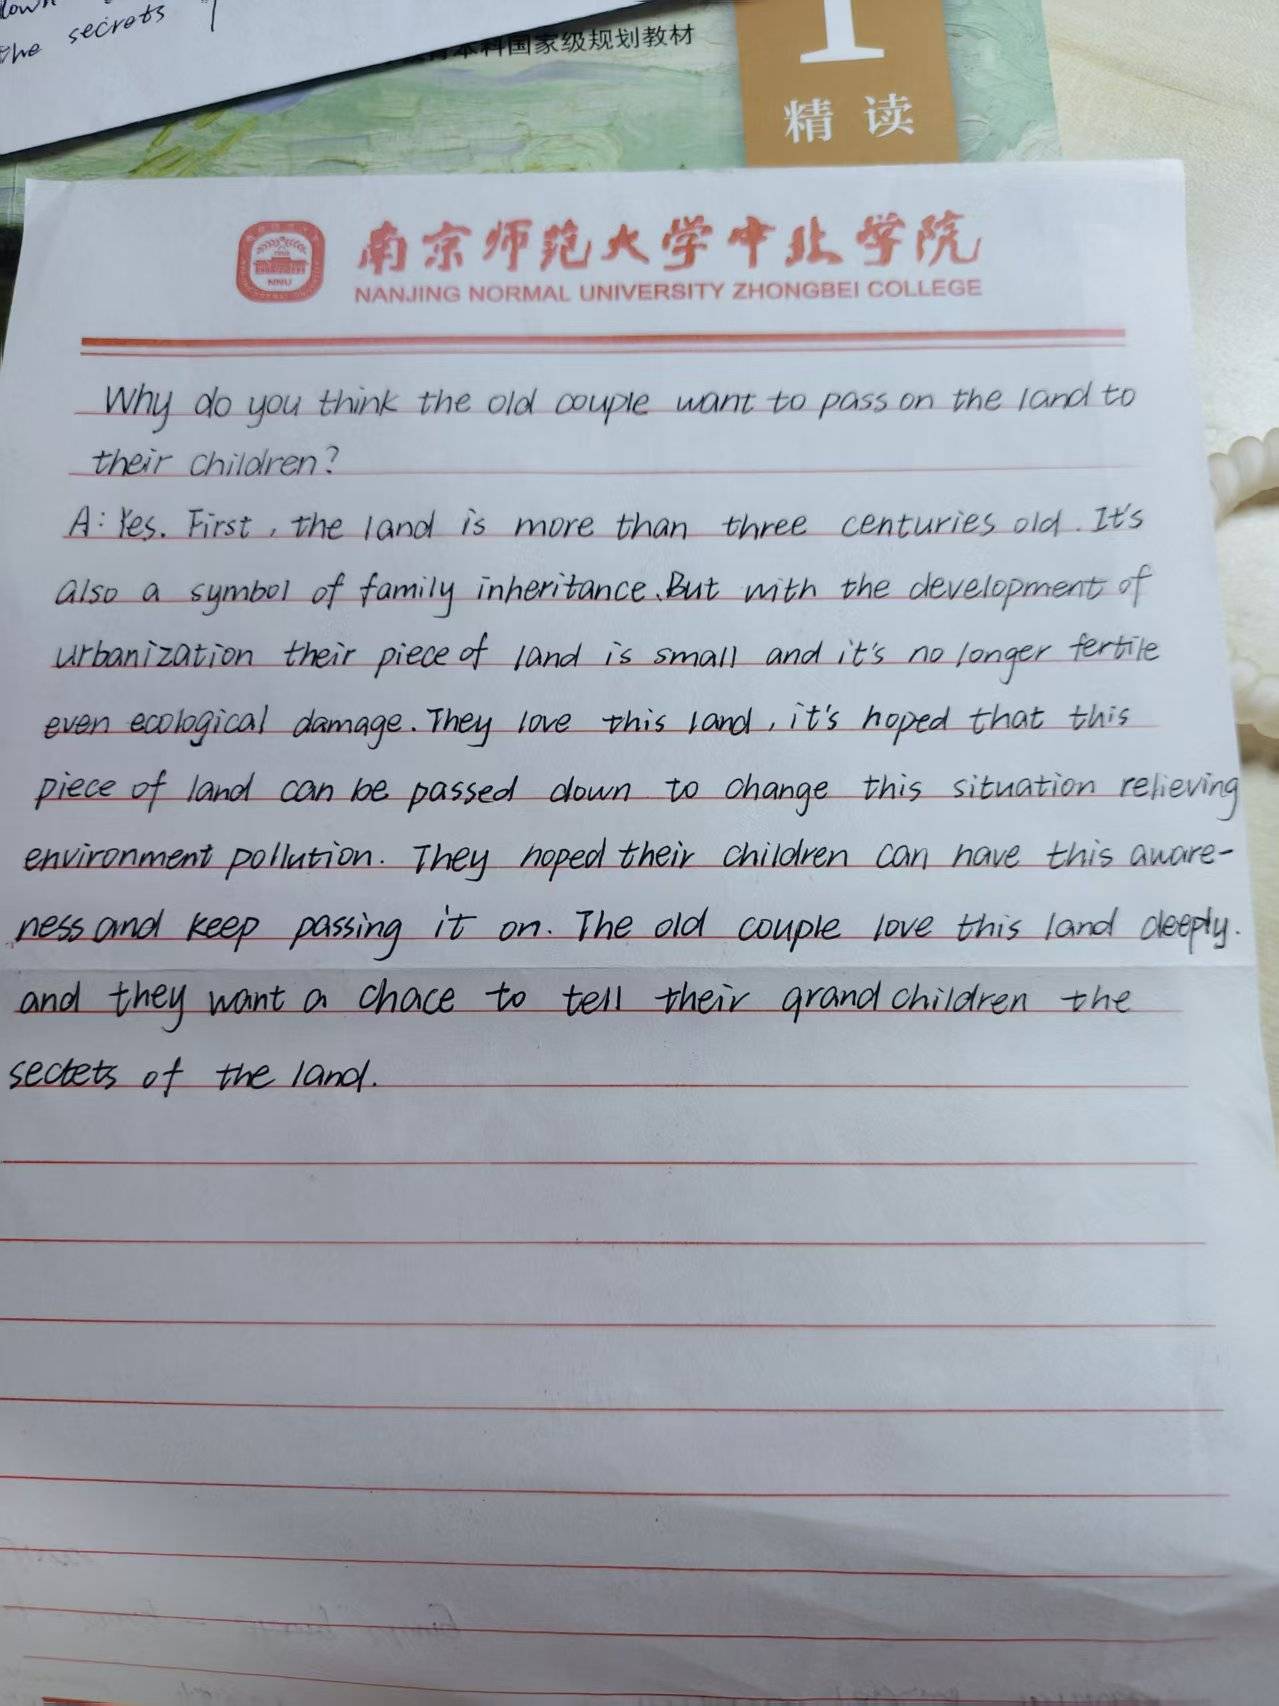 the secrets
本科国家级规划教材
1
精读
南京师范大学中北学院
NANJING NORMAL UNIVERSITY ZHONGBEI COLLEGE
NNU
Why do you think the old couple want to pass on the land to
their children?
A: Yes. First, the land is more than three centuries old. It's
also a symbol of family inheritance. But with the development of
urbanization their piece of land is small and it's no longer fertile
even ecological damage. They love this land, it's hoped that this
piece of land can be passed down to change this situation relieving
environment pollution. They hoped their children can have this aware-
ness and keep passing it on. The old couple love this land deeply.
and they want a chace to tell their grandchildren the
sectets of the land.